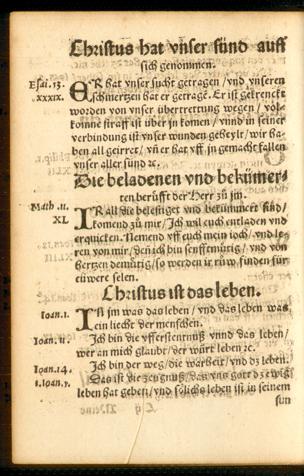 Christus hat vnser sünd auff
sich genommen.
Esai. 53. ER hat vnser sucht getragen / vnd vnseren
xxxix. schmertzen hat er getragē. Er ist gekrenckt
worden von vnser übertrettung wegen / vol-
komne straff ist über jn komen / vnnd in seiner
verbindung ist vnser wunden geheylt / wir ha-
ben all geirret / vn̄ er hat vff jn gemacht fallen
vnser aller sünd ꝛc.
Die beladenen vnd bekümer-
ten berüfft der Herr zů jm.
Math. 11. IR all die belestiget vnd bekümmert sind /
XL komend zů mir / Jch wil euch entladen vnd
erquicken. Nemend vff euch mein joch / vnd le-
ren von mir / deñ ich bin senfftmütig / vnd von
hertzen demütig / so werden ir růw finden für
eüwere selen.
Christus ist das leben.
Ioan. 1. IN jm was das leben / vnd das leben was
ein liecht der menschen.
Ioan. 11. Jch bin die vfferstentnuß vnnd das leben /
wer an mich glaubt / der würt leben ꝛc.
Ioan. 14. Jch bin der weg / die warheit / vnd dz leben.
1. Ioan. 5. Das ist die zeugnuß / das vns gott dz ewig
leben hat geben / vnd sölichs leben ist in seinem
sun